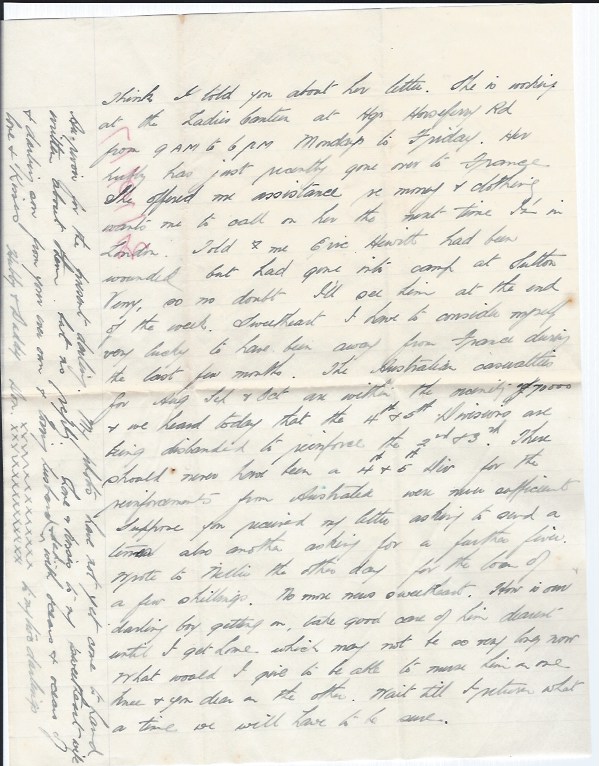 Think I told you about her letter. She is working
at the Ladies Canteen at Hqs Horseferry Rd
from 9 AM to 6 PM Mondays to Friday. Her
hubby has just recently gone over to France
She offered me assistance re money & clothing
wants me to call on her the next time I'm in
London. Told me Eric Hewitt had been
wounded but had gone into camp at Sutton
Veny, so no doubt I'll see him at the end
of the week. Sweetheart I have to consider myself
very lucky to have been away from France during
the last few months. The Australian casualties
for Aug Sept & Oct are within the vicinity of 70000
& we heard today that the 4th & 5th Divisions are
being disbanded to reinforce the 2nd & 3rd. There
should never have been a 4th & 5th Div for the
reinforcements from Australia were never sufficient
Suppose you received my letter asking to send a
also another asking for a further fiver.
Wrote to Nellie the other day for the loan of
a few shillings. No more news sweetheart. How is our
darling boy getting on, take good care of him dearest
until I get home which may not be so very long now
What would I give to be able to nurse him on one
knee & you dear on the other. Wait till I return what
a time we will have to be sure.
Au revoir for the present darling. My photos have not yet come to hand
written about them but no reply. Love & kisses to my sweetheart wife
& darling son from your ever own & loving husband, with oceans & oceans of
love & kisses Hubby & Daddy xxxxxxxxxxx to my two darlings
xxxxxxxxxxxx